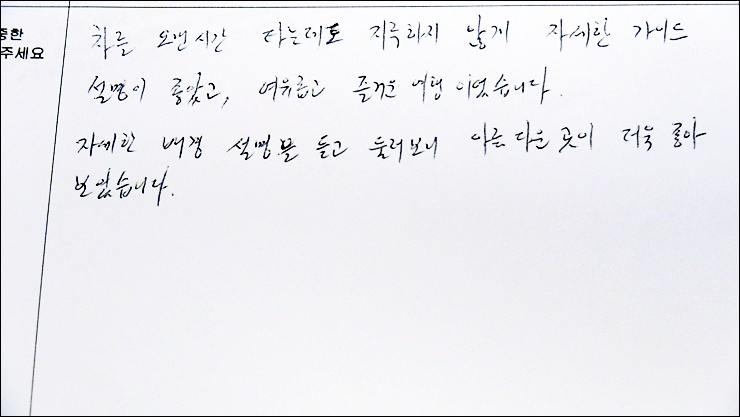 중한
주세요
차를 오랜시간 타는데도 지루하지 않게 자세한 가이드
설명이 좋았고, 여유롭고 즐거운 여행이었습니다.
자세한 배경 설명을 듣고 둘러보니 아름다운 곳이 더욱 좋아
보였습니다.